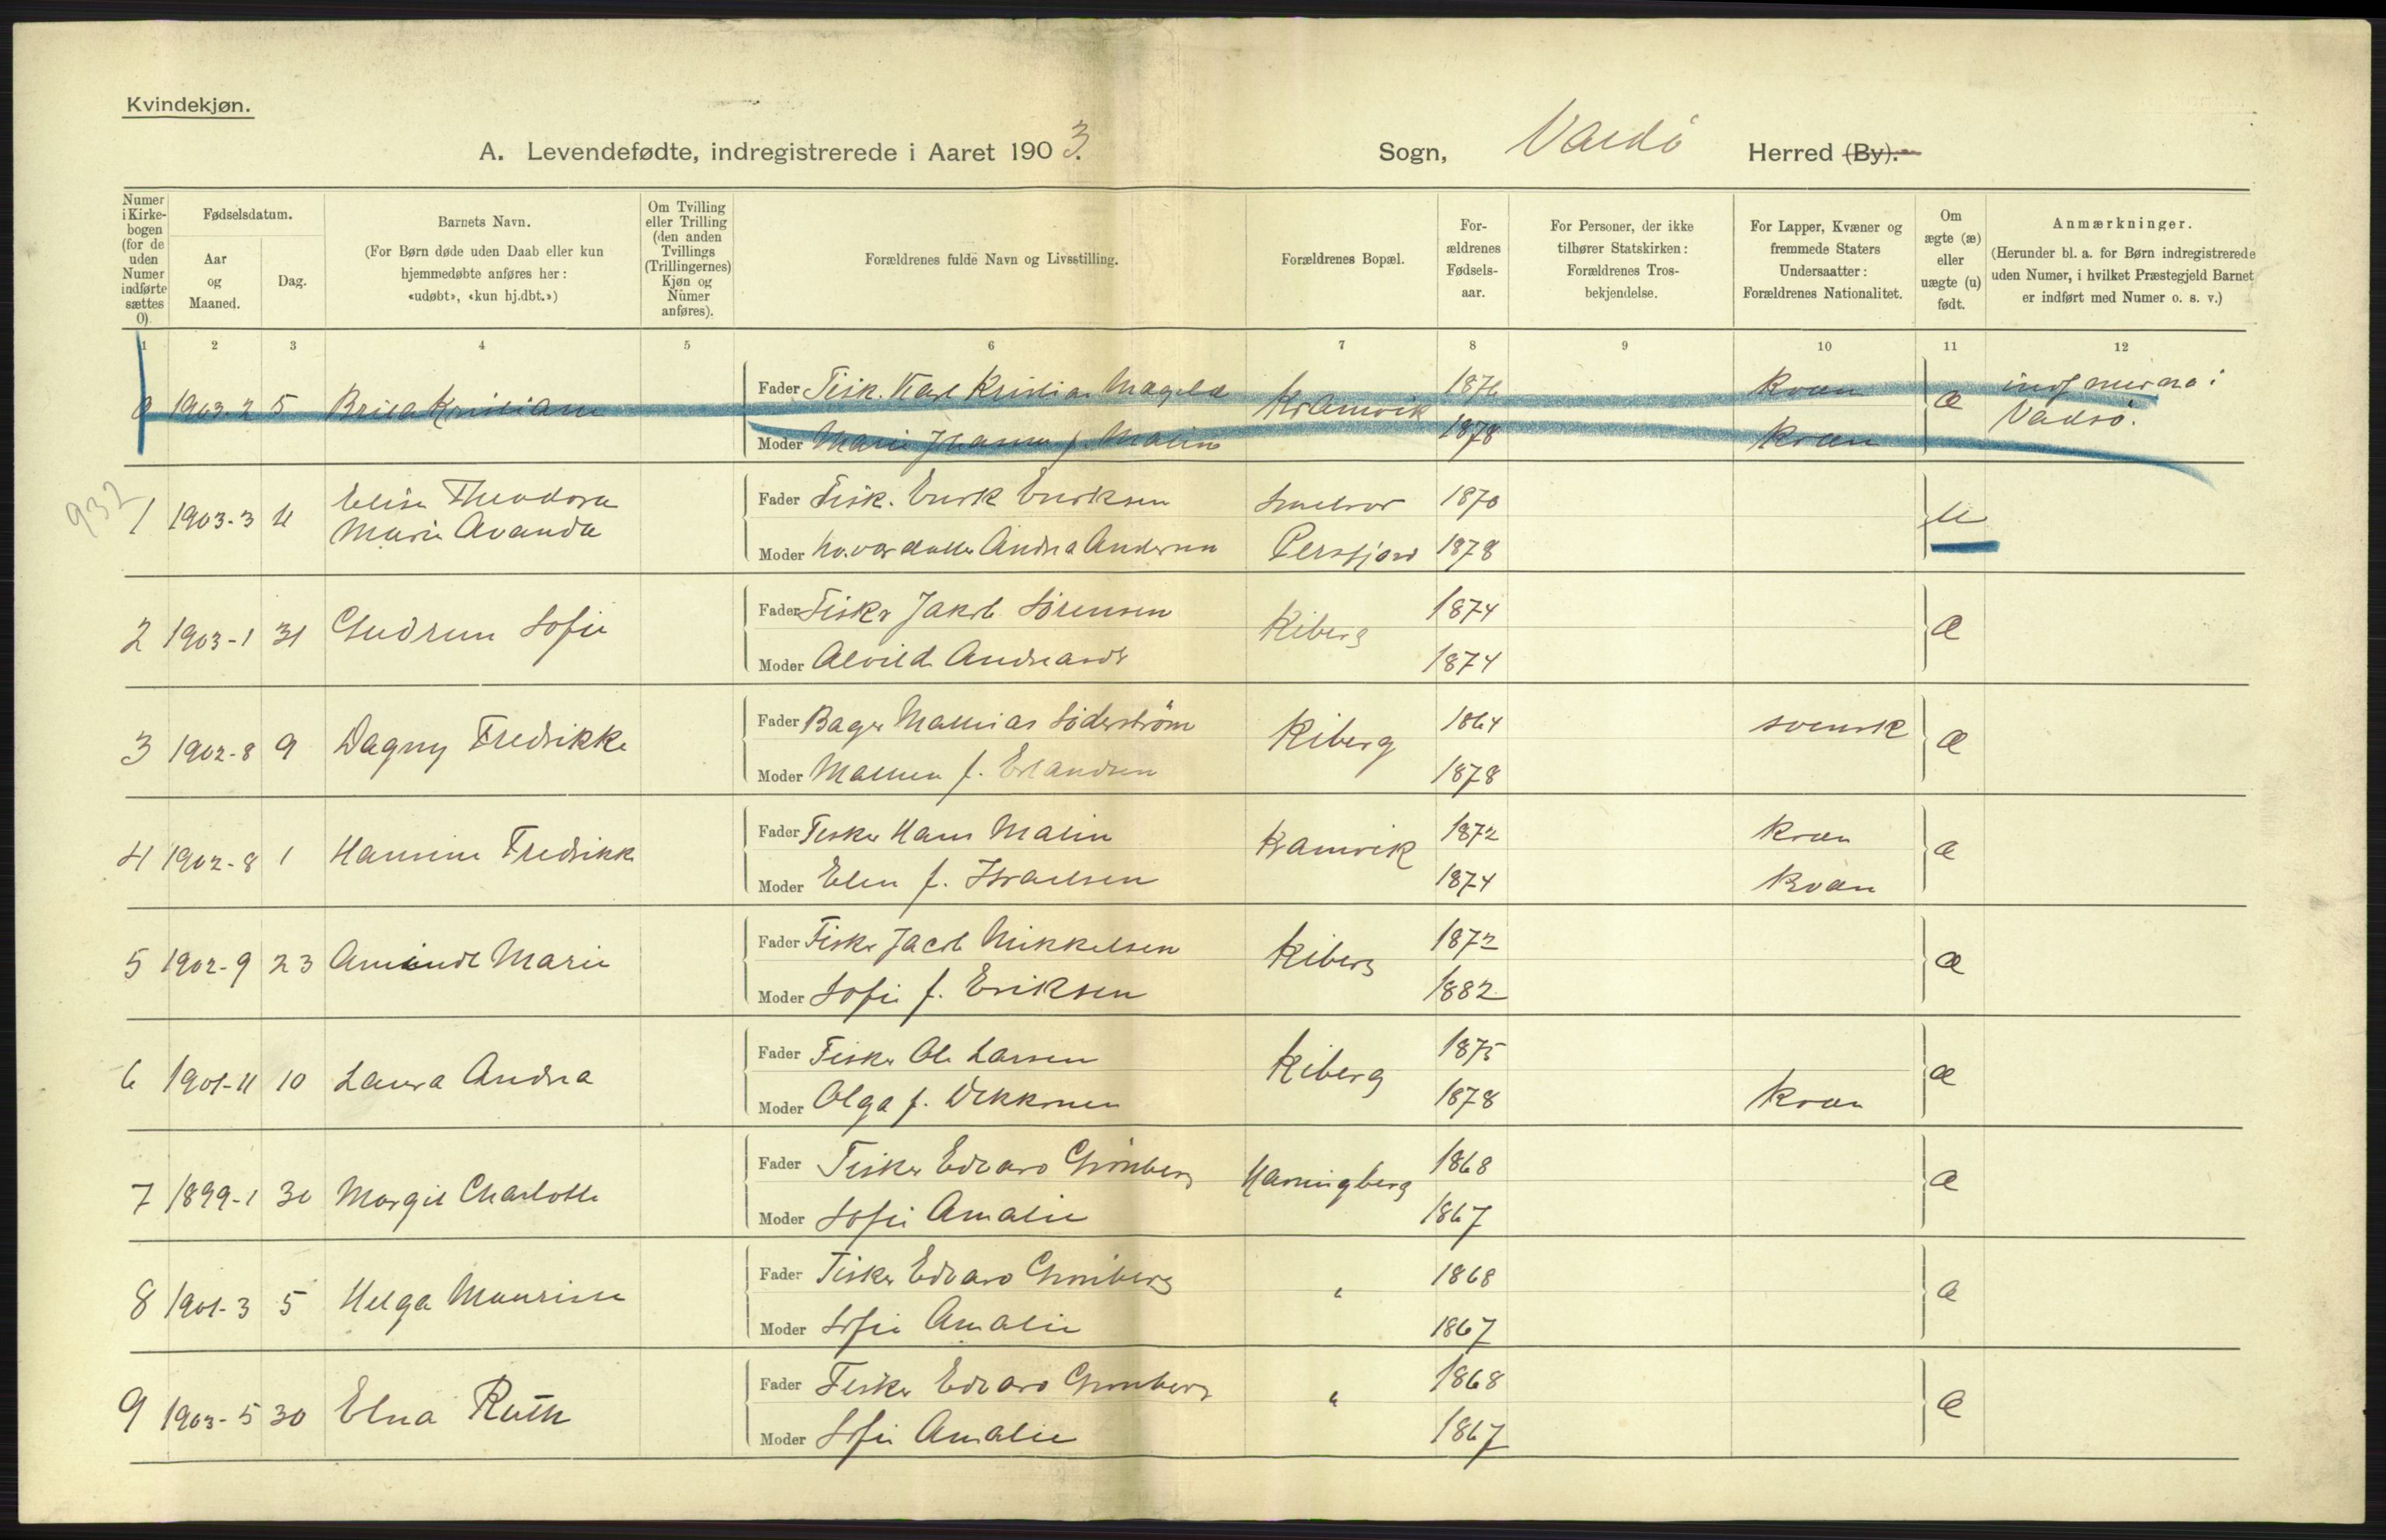 Kvindekjøn.
A. Levendefødte, indregistrerede i Aaret 1903. Sogn, Vardö Herred (By).
Numer i Kirkebogen (for de uden Numer indførte sættes 0).
Fødselsdatum.
Aar og Maaned.
Dag.
Barnets Navn.
(For Børn døde uden Daab eller kun hjemmedøbte anføres her: «udøbt», «kun hj.dbt.»)
Om Tvilling eller Trilling (den anden Tvillings (Trillingernes) Kjøn og Numer anføres).
Forældrenes fulde Navn og Livsstilling.
Forældrenes Bopæl.
Forældrenes Fødselsaar.
For Personer, der ikke tilhører Statskirken: Forældrenes Trosbekjendelse.
For Lapper, Kvæner og fremmede Staters Undersaatter: Forældrenes Nationalitet.
Om ægte (æ) eller uægte (u) født.
Anmærkninger.
(Herunder bl. a. for Børn indregistrerede uden Numer, i hvilket Præstegjeld Barnet er indført med Numer o. s. v.)
1 2 3 4 5 6 7 8 9 10 11 12
0 1903-2 5 Fader Fisk. Karl Kristian Kramvik 1876 Kvæn æ
Moder Marie f. Malin 1878 Kvæn Vadsö.
932
1 1903-3 4 Elise Theodora Marie Avanda Fader Fisk. Enok Enoksen Smelror 1870 u
Moder Andrea Andersen Persfjord 1878
2 1903-1 31 Gudrun Sofie Fader Fisker Jakob Sörensen Kiberg 1874 æ
Moder Alvild 1874
3 1902-8 9 Dagny Fredrikke Fader Bager Mathias Söderström Kiberg 1864 svensk æ
Moder f. Erlandsen 1878
4 1902-8 1 Hansine Fredrikke Fader Fisker Hans Malin Kramvik 1872 Kvæn æ
Moder Elen f. Israelsen 1874 Kvæn
5 1902-9 23 Aminde Marie Fader Fisker Jacob Mikkelsen Kiberg 1872 æ
Moder Sofie f. Eriksen 1882
6 1901-11 10 Laura Andrea Fader Fisker Ole Larsen Kiberg 1875 æ
Moder Olga f. 1878 Kvæn
7 1899-1 30 Margit Charlotte Fader Fisker Edvard Grönberg Havningberg 1868 æ
Moder Sofie Amalie 1867
8 1901-3 5 Helga Fader Fisker Edvard Grönberg " 1868 æ
Moder Sofie Amalie 1867
9 1903-5 30 Elna Ruth Fader Fisker Edvard Grönberg " 1868 æ
Moder Sofie Amalie 1867